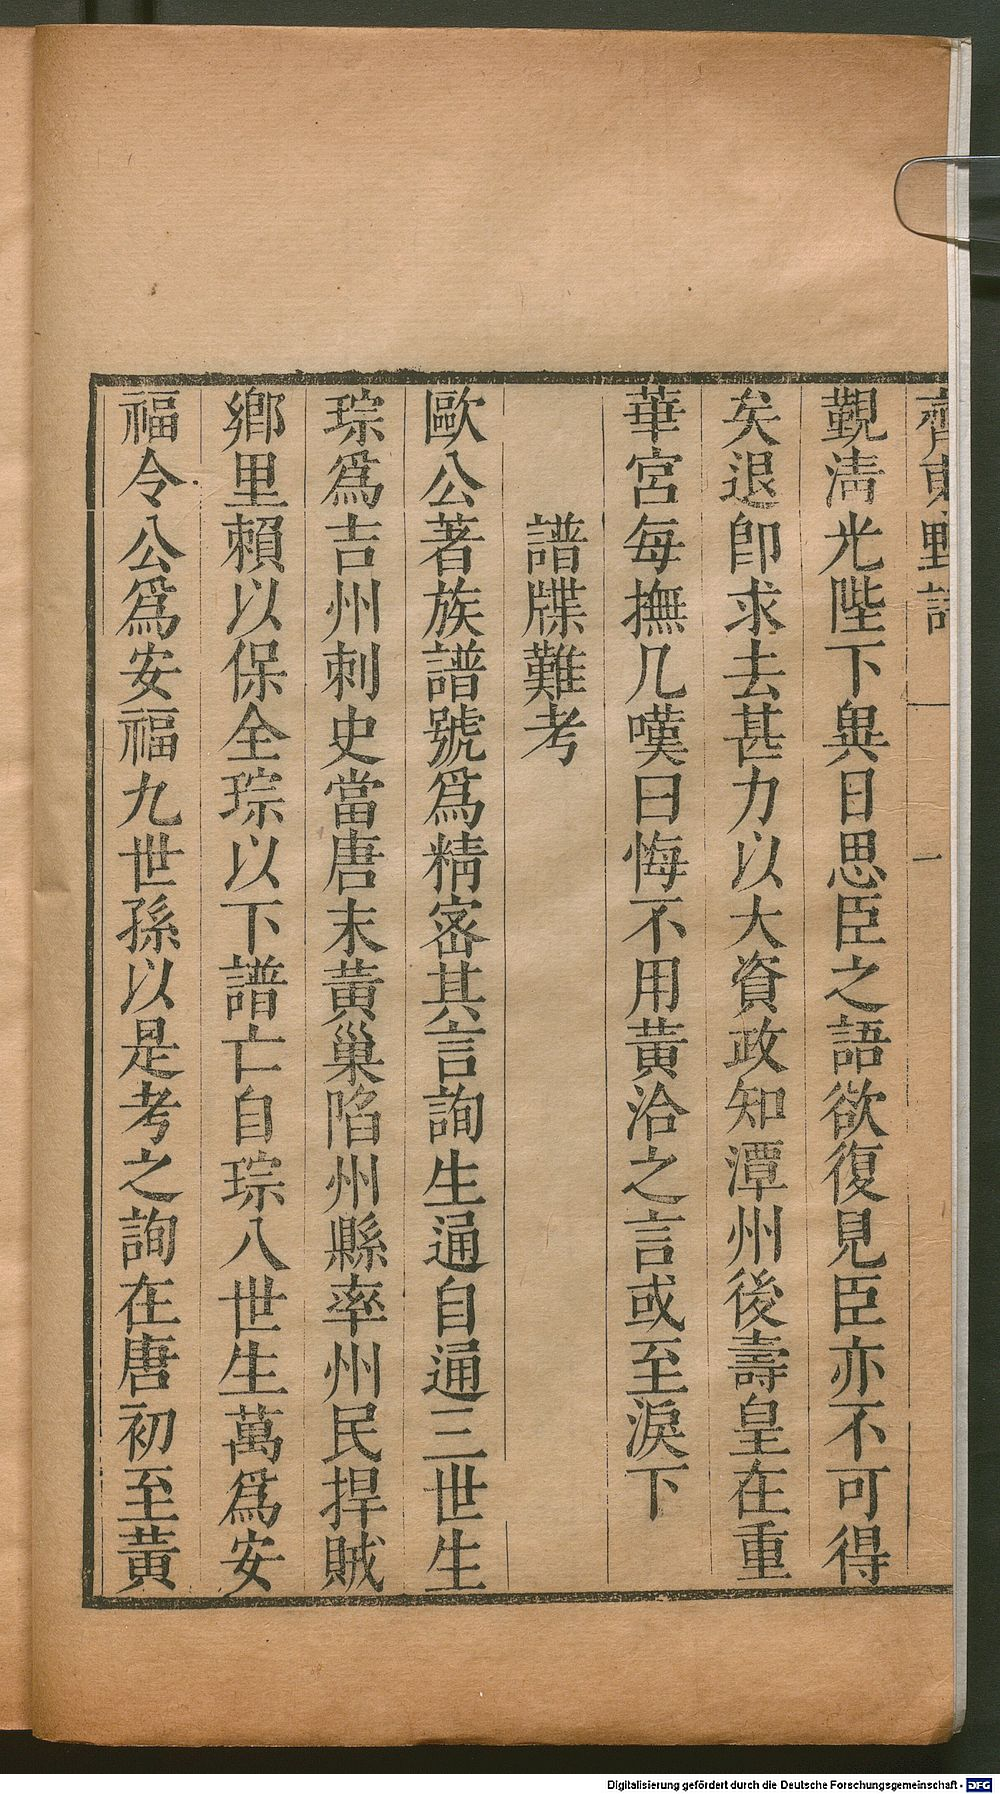 齊東野語
一
覲清光陛下異日思臣之語欲復見臣亦不可得
矣退卽求去甚力以大資政知潭州後壽皇在重
華宮每撫几嘆曰悔不用黃洽之言或至淚下
譜牒難考
歐公著族譜號爲精密其言詢生通自通三世生
琮爲吉州刺史當唐末黃巢陷州縣率州民捍賊
鄉里賴以保全琮以下譜亡自琮八世生萬爲安
福令公爲安福九世孫以是考之詢在唐初至黃
Digitalisierung gefördert durch die Deutsche Forschungsgemeinschaft - DFG